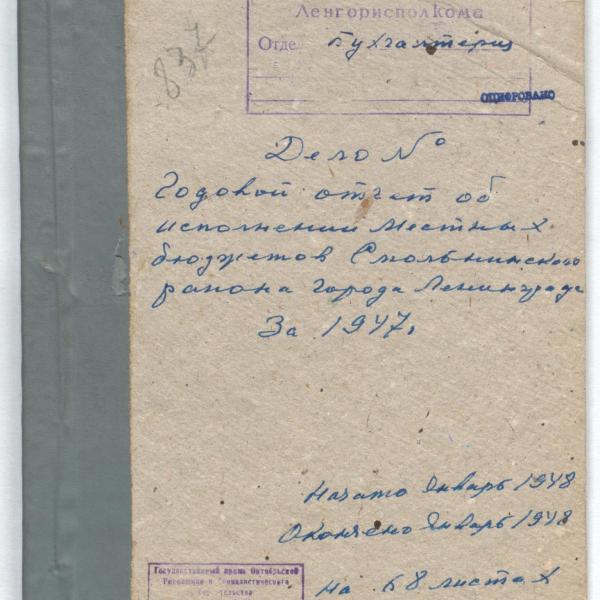 Ленгорисполкома
Отде Бухгалтерии
837
ОЦИФРОВАНО
Дело №
Годовой отчет об
исполнении местных
бюджетов Смольнинского
района города Ленинграда
За 1947г.
Начато Январь 1948
Окончено Январь 1948
На 68 листах
Государственный архив Октябрьской
Революции и Социалистического